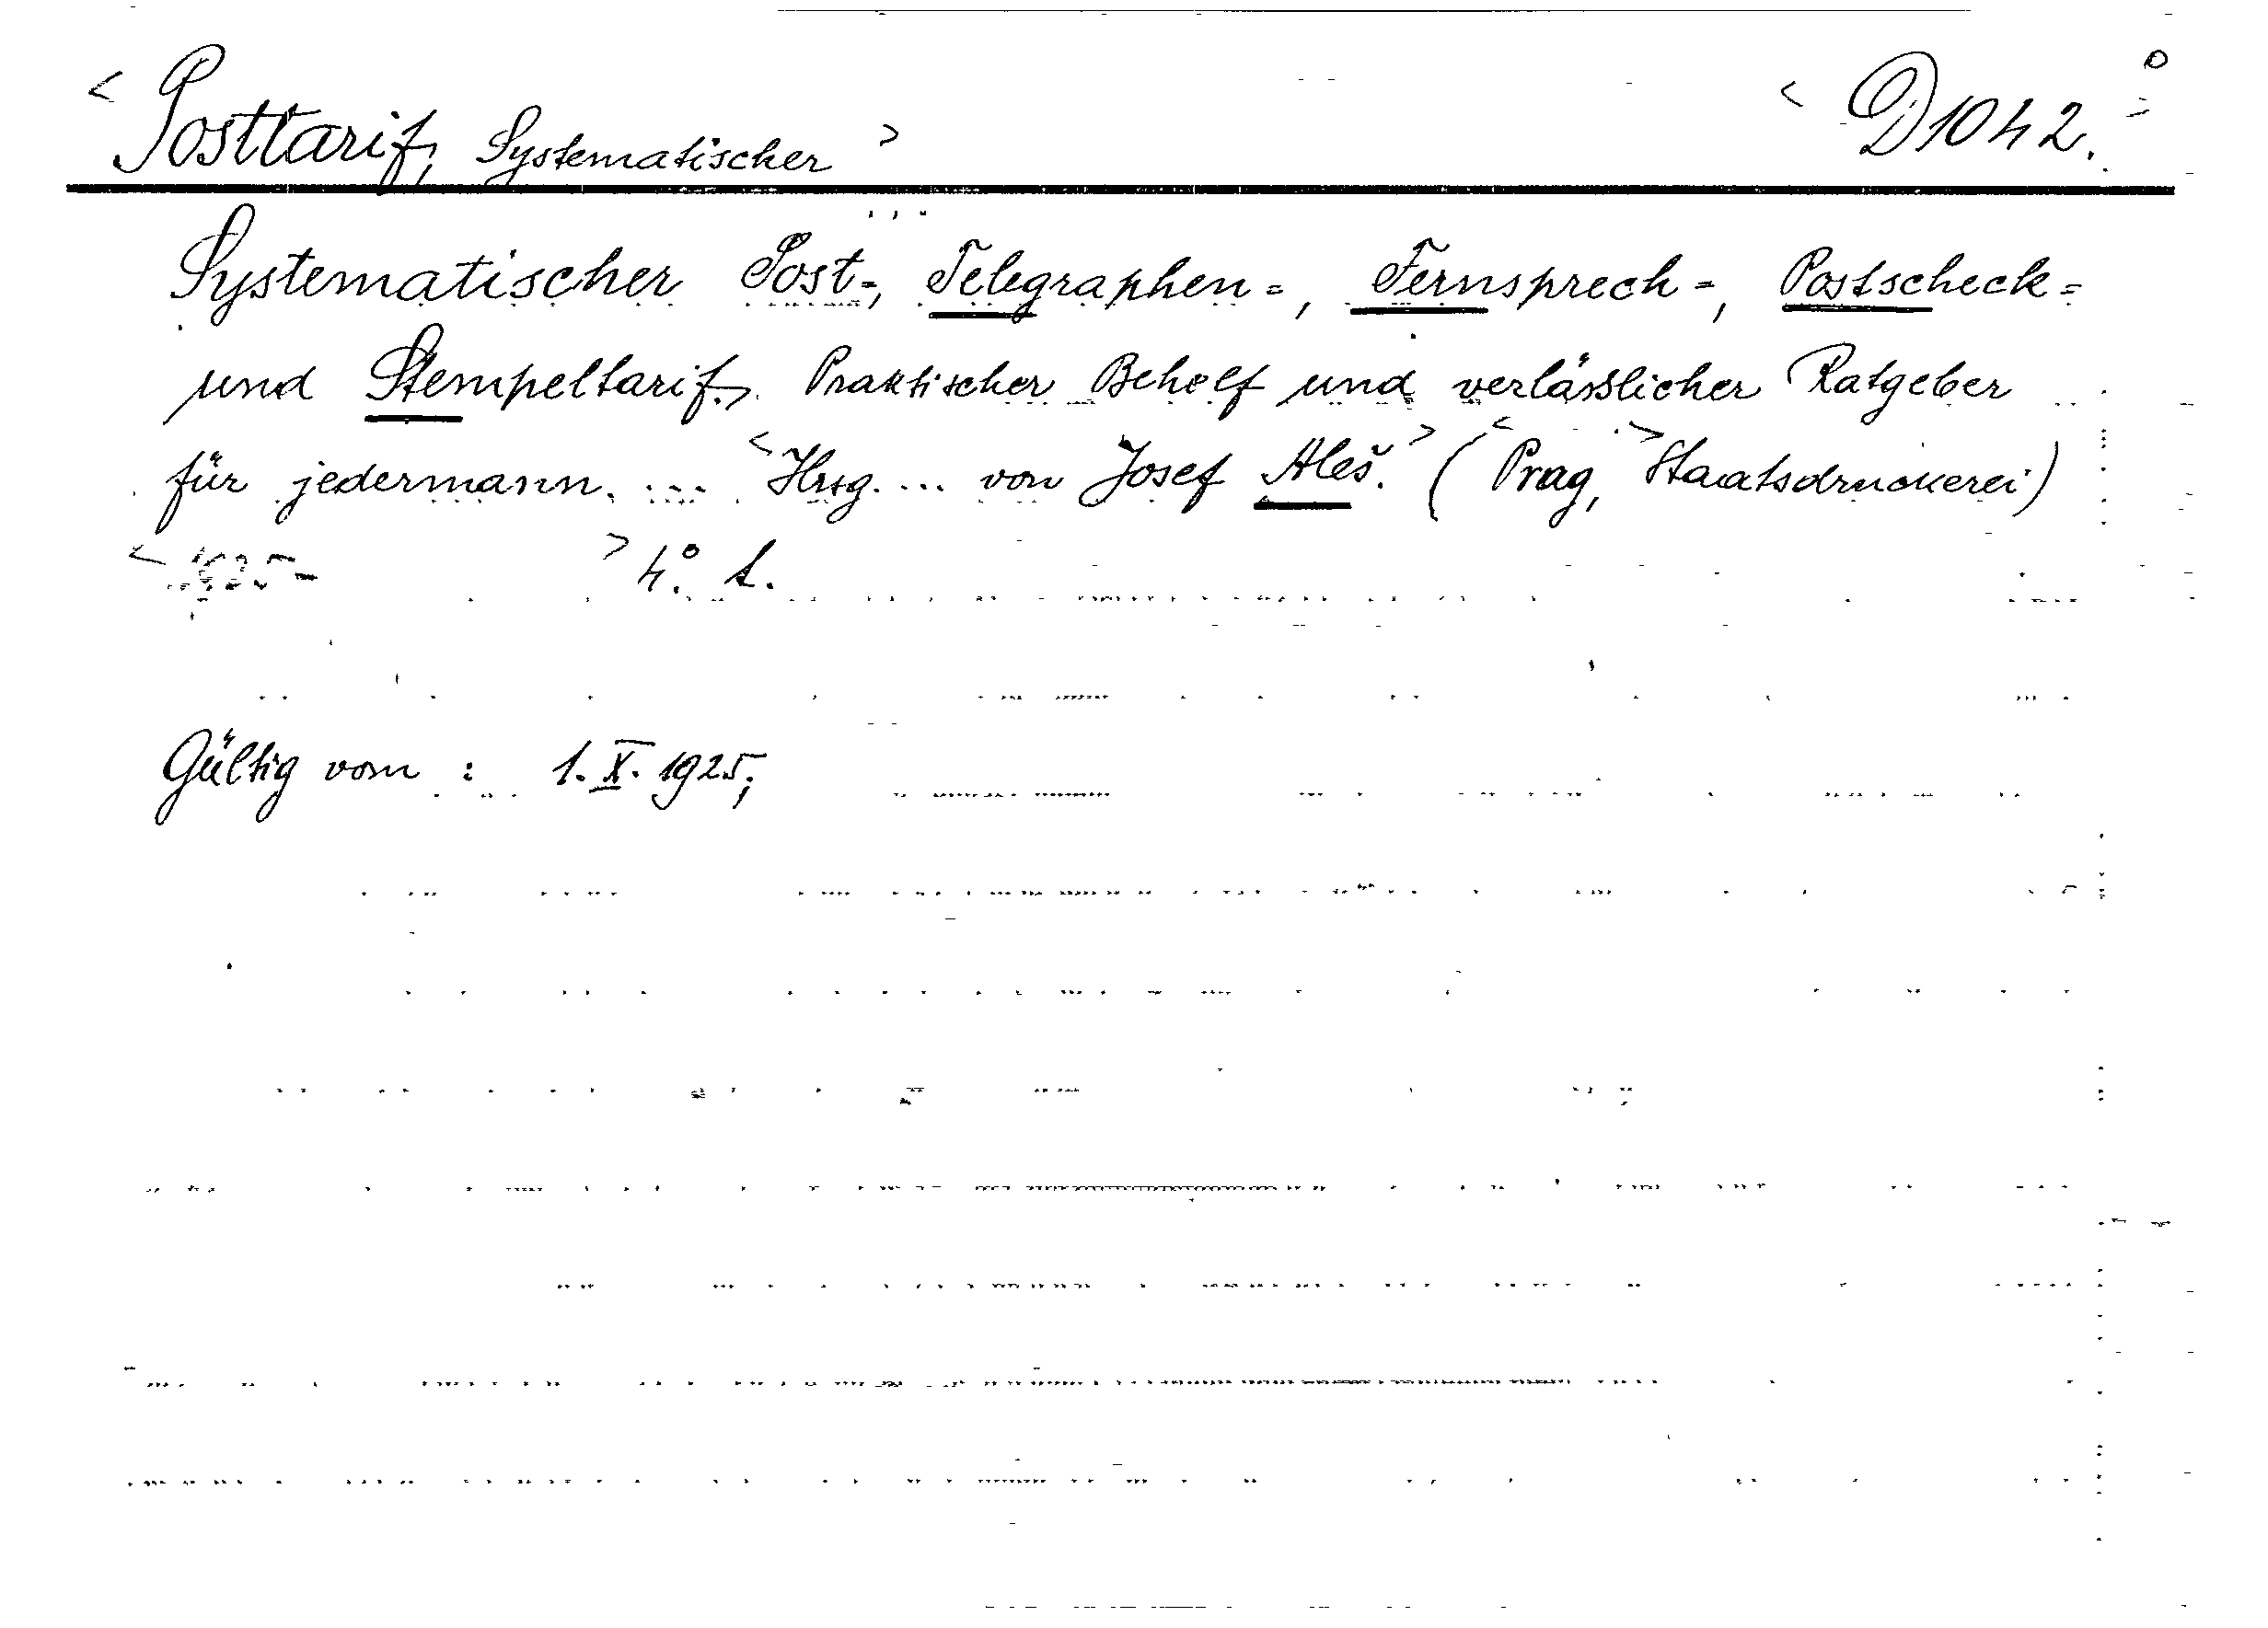 < Posttarif, Systematischer > < D 1042.
Systematischer Post-, Telegraphen=, Fernsprech-, Postscheck=
und Stempeltarif.> Praktischer Behelf und verlässlicher Ratgeber
für jedermann. ... <Hrsg. ... von Josef Aleš.> (<Prag,> Staatsdruckerei)
< 1925- > 4°. L.
Gültig vom : 1. X. 1925;